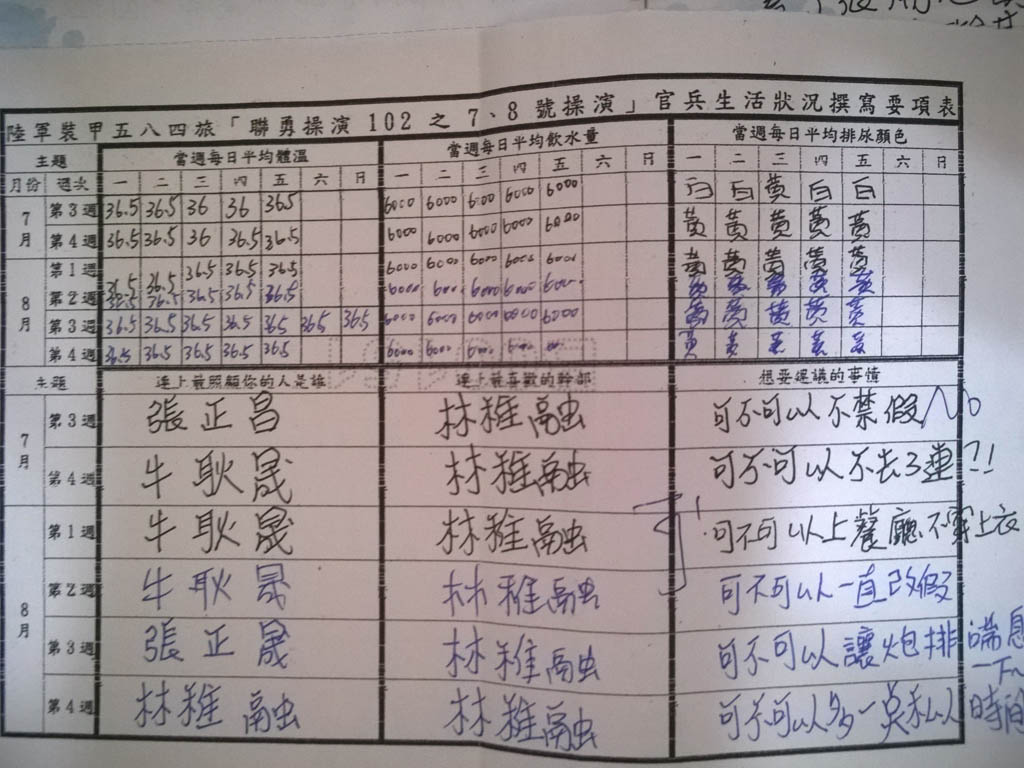 陸軍裝甲五八四旅「聯勇操演 102 之 7、8 號操演」官兵生活狀況撰寫要項表
主題 當週每日平均體溫 當週每日平均飲水量 當週每日平均排尿顏色
月份 週次 一 二 三 四 五 六 日 一 二 三 四 五 六 日 一 二 三 四 五 六 日
7月 第3週 36.5 36.5 36 36 36.5 6000 6000 6000 6000 6000 白 白 黃 白 白
第4週 36.5 36.5 36 36.5 36.5 6000 6000 6000 6000 6000 黃 黃 黃 黃 黃
8月 第1週 36.5 36.5 36.5 36.5 36.5 6000 6000 6000 6000 6000 黃 黃 黃 黃 黃
第2週 36.5 36.5 36.5 36.5 36.5 6000 6000 6000 6000 6000 黃 黃 黃 黃 黃
第3週 36.5 36.5 36.5 36.5 36.5 36.5 36.5 6000 6000 6000 6000 6000 黃 黃 黃 黃 黃
第4週 36.5 36.5 36.5 36.5 36.5 6000 6000 6000 6000 黃 黃 黃 黃 黃
主題 連上最照顧你的人是誰 連上最喜歡的幹部 想要建議的事情
7月 第3週 張正昌 林稚融 可不可以不禁假
第4週 牛耿晟 林稚融 可不可以不去3連?!
8月 第1週 牛耿晟 林稚融 可不可以上餐廳不穿上衣
第2週 牛耿晟 林稚融 可不可以一直改假
第3週 張正晟 林稚融 可不可以讓炮排喘息一下
第4週 林稚融 林稚融 可不可以多一點私人時間